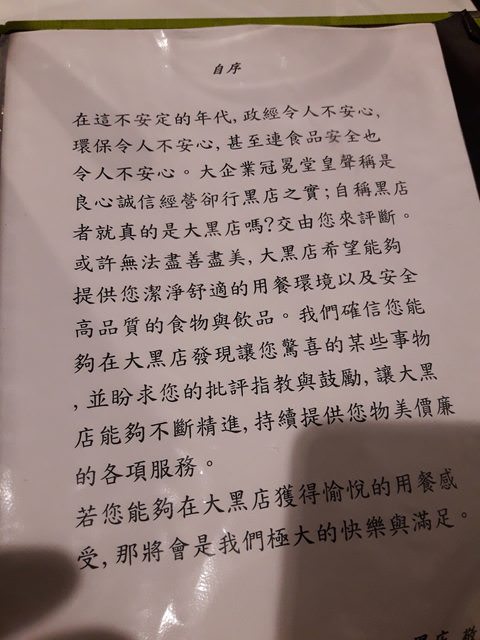 自序
在這不安定的年代,政經令人不安心,
環保令人不安心,甚至連食品安全也
令人不安心。大企業冠冕堂皇聲稱是
良心誠信經營卻行黑店之實;自稱黑店
者就真的是大黑店嗎?交由您來評斷。
或許無法盡善盡美,大黑店希望能夠
提供您潔淨舒適的用餐環境以及安全
高品質的食物與飲品。我們確信您能
夠在大黑店發現讓您驚喜的某些事物
,並盼求您的批評指教與鼓勵,讓大黑
店能夠不斷精進,持續提供您物美價廉
的各項服務。
若您能夠在大黑店獲得愉悅的用餐感
受,那將會是我們極大的快樂與滿足。
黑店 敬